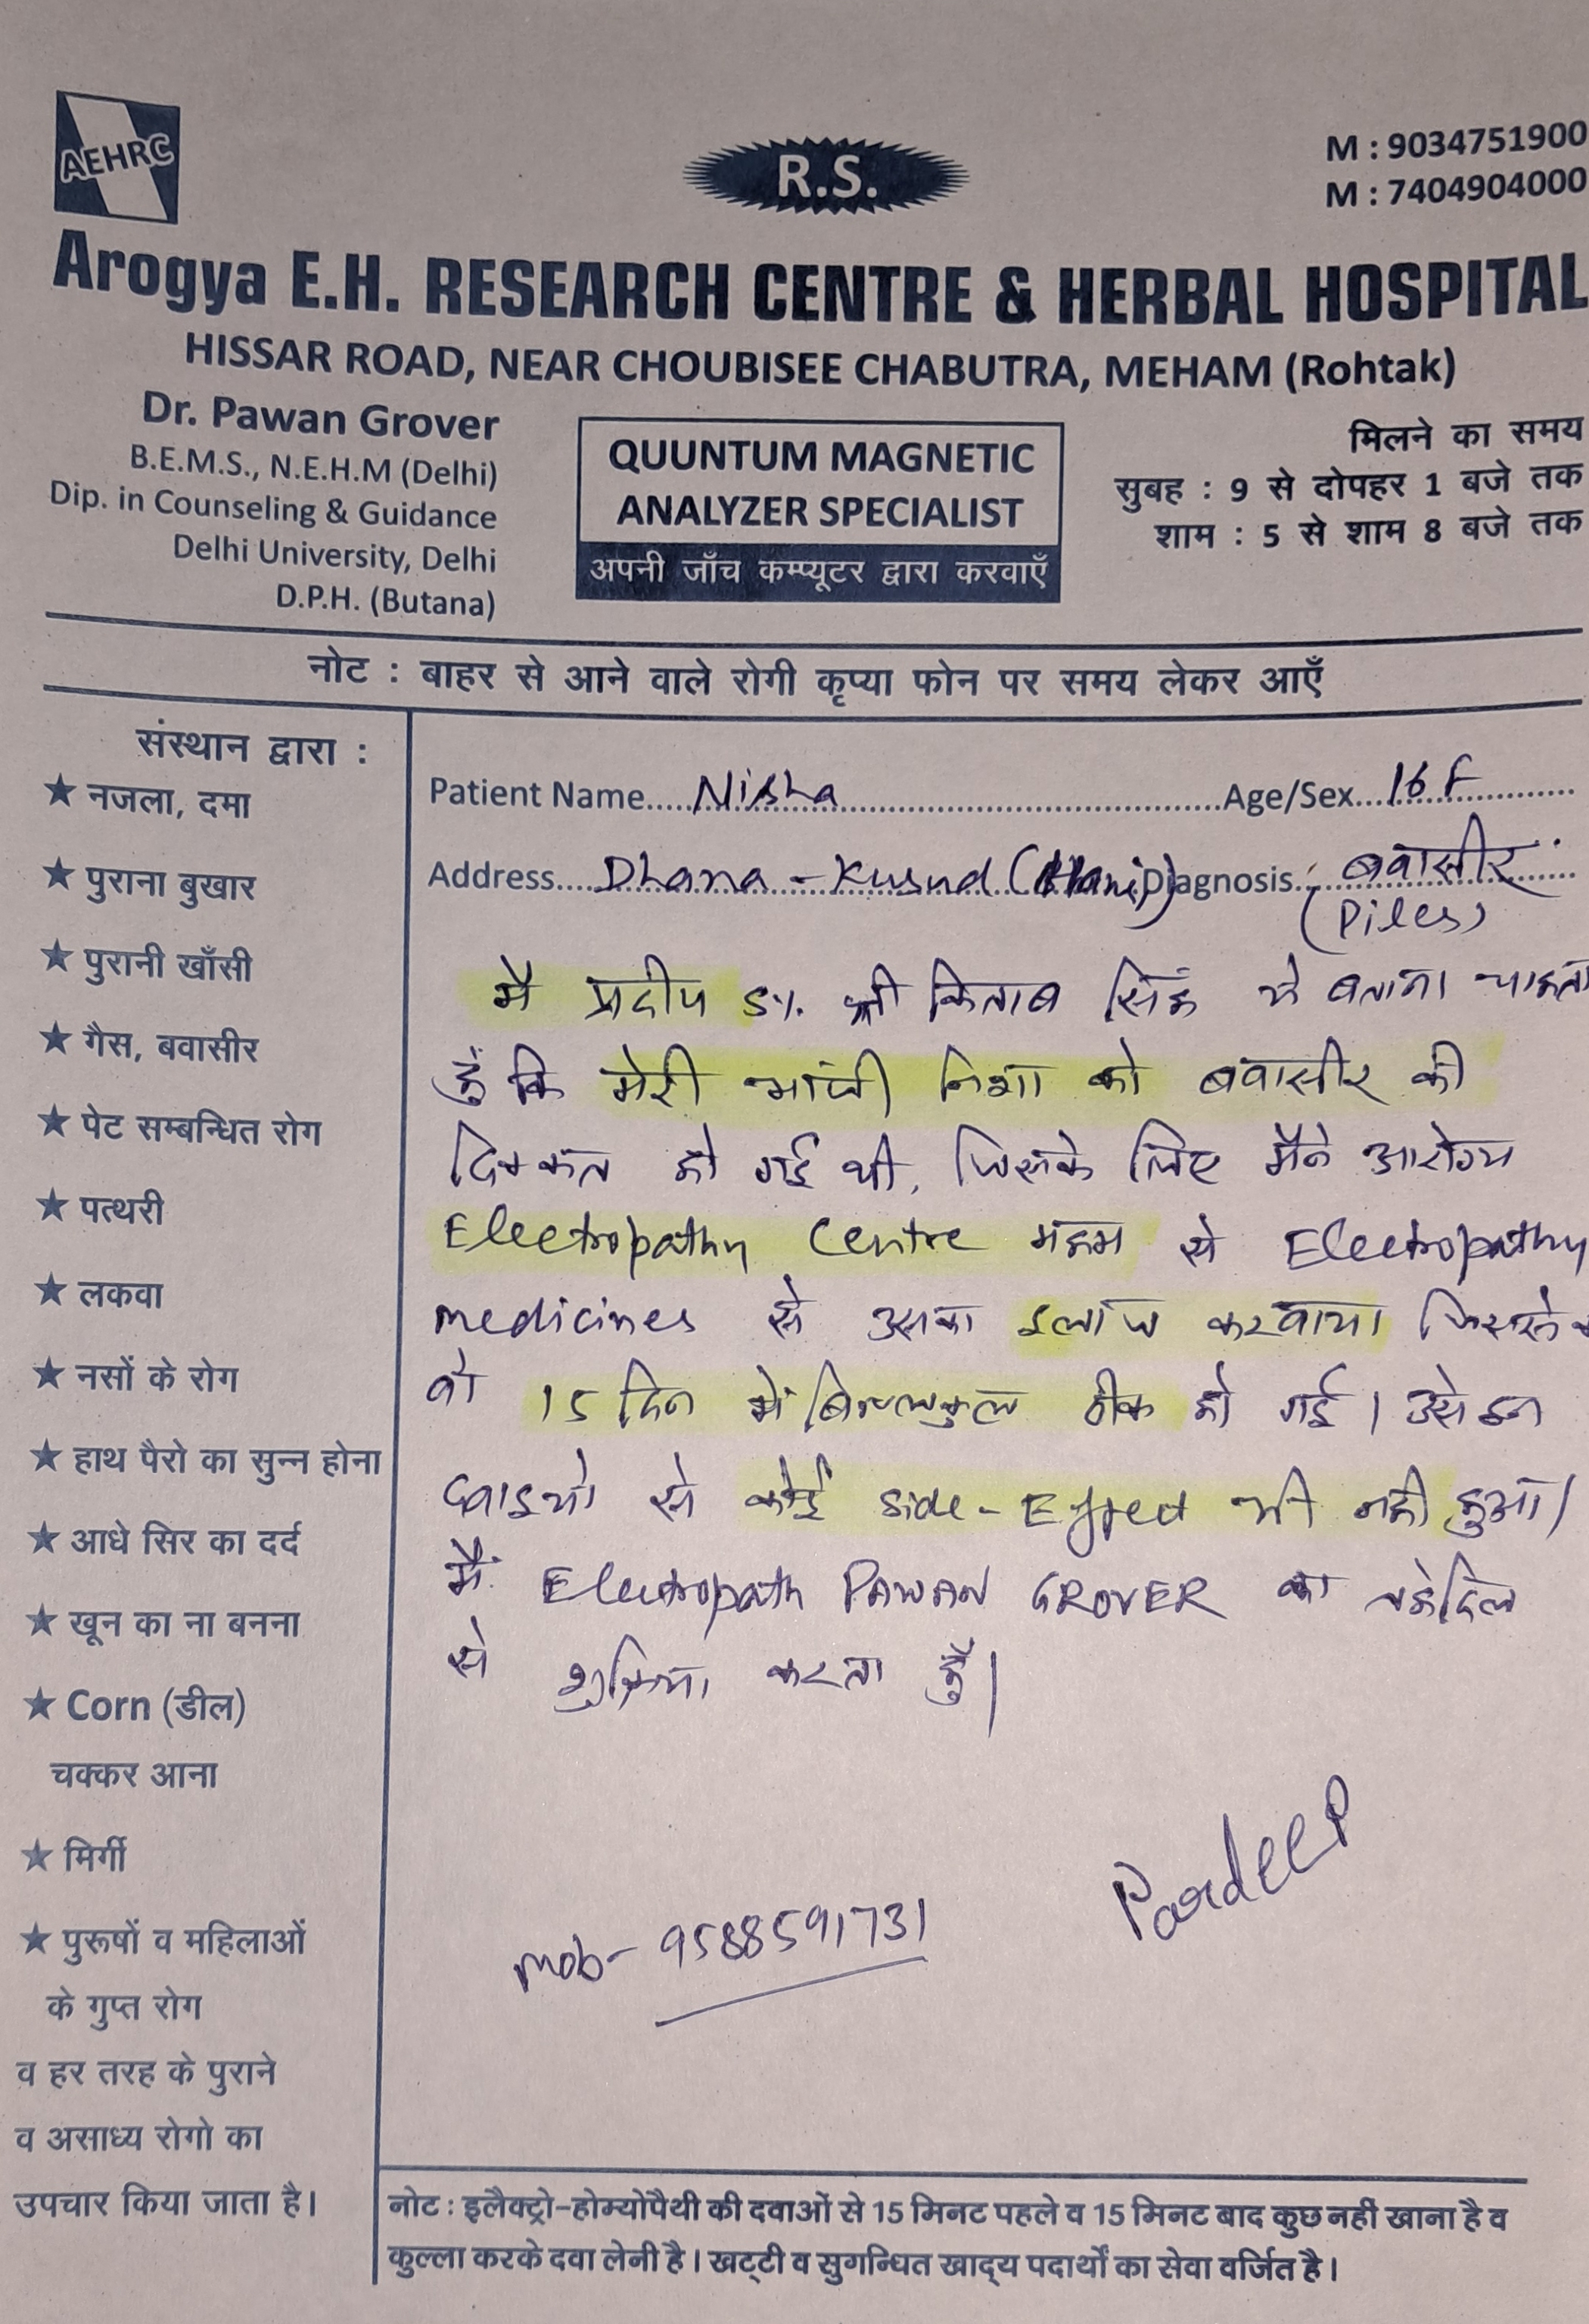 AEHRC
R.S.
M : 9034751900
M : 7404904000
Arogya E.H. RESEARCH CENTRE & HERBAL HOSPITAL
HISSAR ROAD, NEAR CHOUBISEE CHABUTRA, MEHAM (Rohtak)
Dr. Pawan Grover
B.E.M.S., N.E.H.M (Delhi)
Dip. in Counseling & Guidance
Delhi University, Delhi
D.P.H. (Butana)
QUUNTUM MAGNETIC
ANALYZER SPECIALIST
अपनी जाँच कम्प्यूटर द्वारा करवाएँ
मिलने का समय
सुबह : 9 से दोपहर 1 बजे तक
शाम : 5 से शाम 8 बजे तक
नोट : बाहर से आने वाले रोगी कृप्या फोन पर समय लेकर आएँ
संस्थान द्वारा :
★ नजला, दमा
★ पुराना बुखार
★ पुरानी खाँसी
★ गैस, बवासीर
★ पेट सम्बन्धित रोग
★ पत्थरी
★ लकवा
★ नसों के रोग
★ हाथ पैरो का सुन्न होना
★ आधे सिर का दर्द
★ खून का ना बनना
★ Corn (डील)
चक्कर आना
★ मिर्गी
★ पुरूषों व महिलाओं
के गुप्त रोग
व हर तरह के पुराने
व असाध्य रोगो का
उपचार किया जाता है।
Patient Name.....Nisha Age/Sex...16 F
Address....Dhana - Diagnosis.: बवासीर
(Piles)
मै प्रदीप S/. श्री किताब सिंह ये बताना चाहता
हूँ कि मेरी भांजी निशा को बवासीर की
दिक्कत हो गई थी, जिसके लिए मैने आरोग्य
Electropathy Centre महम से Electropathy
medicines से उसका इलाज करवाया जिससे
वो 15 दिन में बिल्कुल ठीक हो गई। उसे इन
दवाइयो से कोई side-Effect भी नही हुआ।
मैं Electropath PAWAN GROVER का तहेदिल
से शुक्रिया करता हूँ।
Pardeep
mob- 9588591731
नोट : इलैक्ट्रो-होम्योपैथी की दवाओं से 15 मिनट पहले व 15 मिनट बाद कुछ नहीं खाना है व
कुल्ला करके दवा लेनी है। खट्टी व सुगन्धित खाद्य पदार्थों का सेवा वर्जित है।